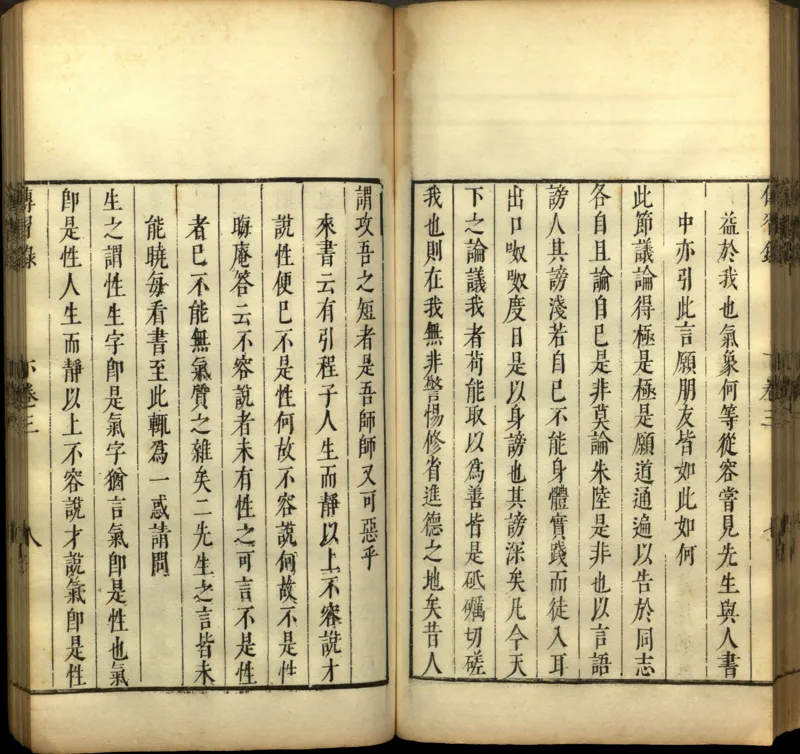 傳習錄
卷三
益於我也氣象何等從容嘗見先生與人書
中亦引此言願朋友皆如此如何
此節議論得極是極是願道通遍以告於同志
各自且論自己是非莫論朱陸是非也以言語
謗人其謗淺若自己不能身體實踐而徒入耳
出口呶呶度日是以身謗也其謗深矣凡今天
下之論議我者苟能取以為善皆是砥礪切磋
我也則在我無非警惕修省進德之地矣昔人
謂攻吾之短者是吾師師又可惡乎
來書云有引程子人生而靜以上不容說才
說性便巳不是性何故不容說何故不是性
晦庵答云不容說者未有性之可言不是性
者巳不能無氣質之雜矣二先生之言皆未
能曉每看書至此輒為一惑請問
生之謂性生字即是氣字猶言氣即是性也氣
即是性人生而靜以上不容說才說氣即是性
傳習錄
卷三
八